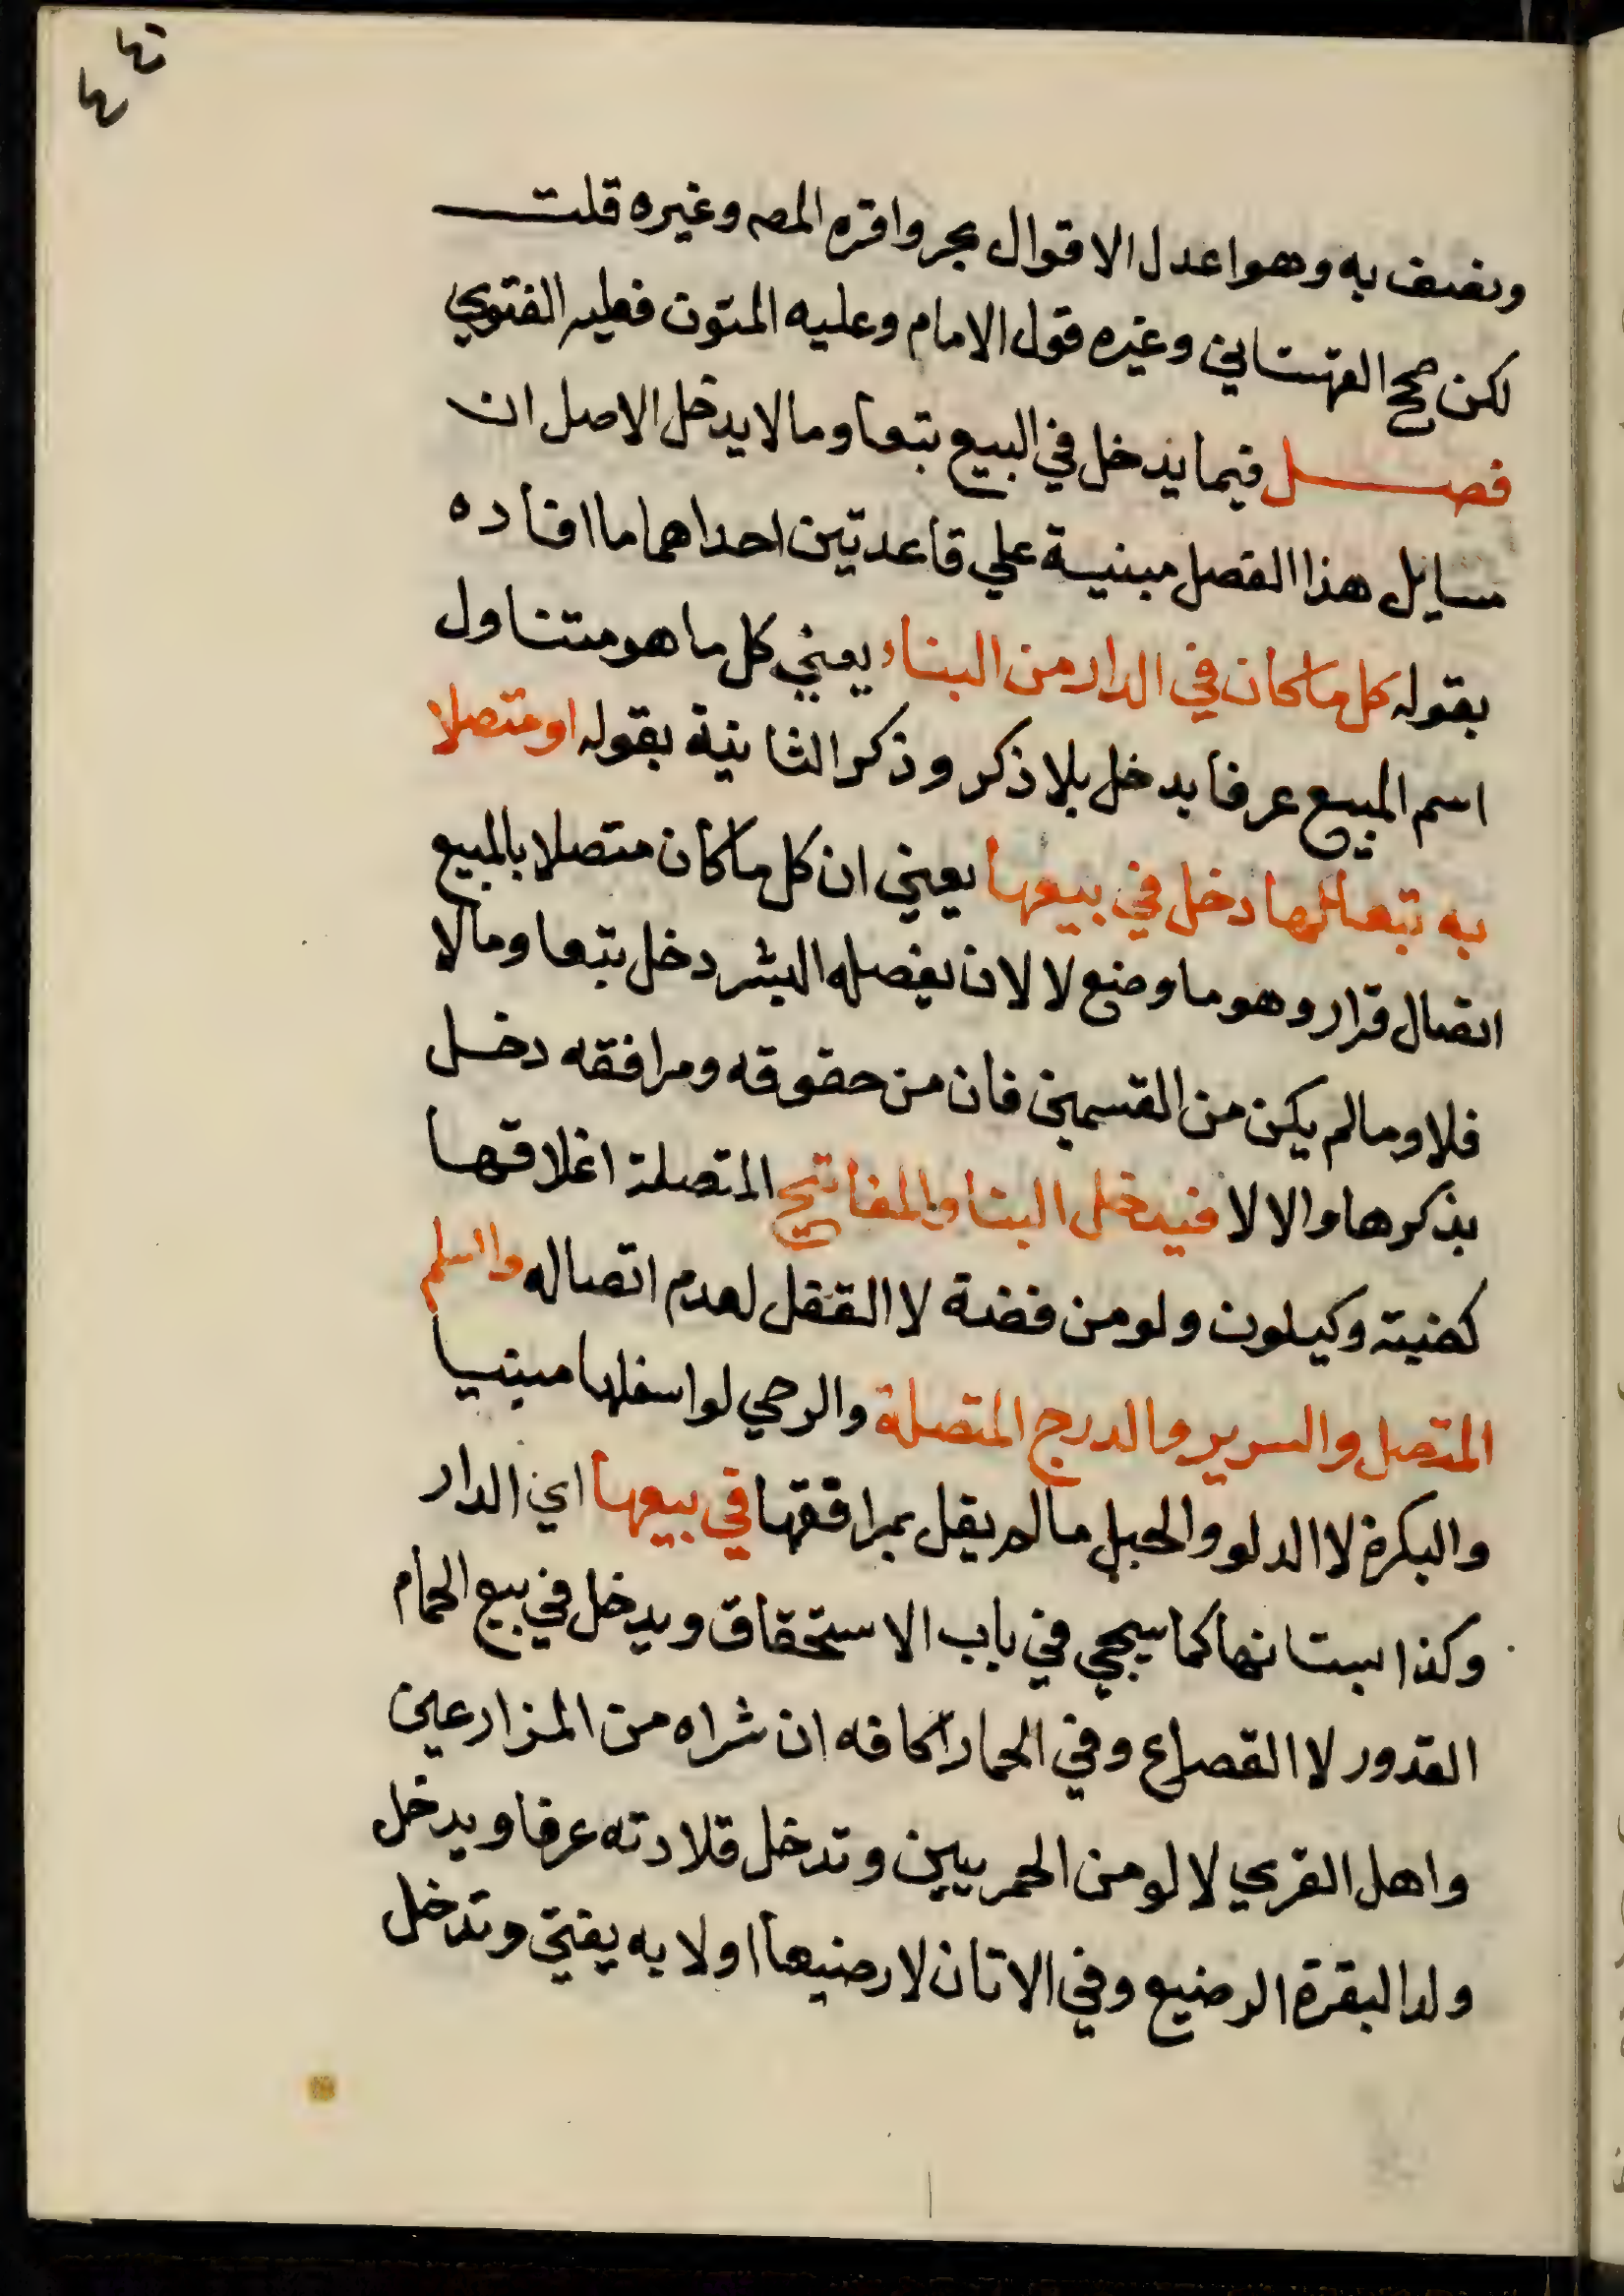 ونصف به وهو اعدل الاقوال بحر واقره المصه وغيره قلت
لكن صحح القهستاني وغيره قول الامام وعليه المتون فعليه الفتوي
فصل فيما يدخل في البيع تبعا وما لا يدخل الاصل ان
مسايل هذا الفصل مبنية علي قاعدتين احداهما ما افاده
بقوله كل ما كان في الدار من البناء يعني كل ما هو متناول
اسم المبيع عرفا يدخل بلا ذكر وذكر الثانية بقوله او متصلا
به تبعا لها دخل في بيعها يعني ان كل ما كان متصلا بالمبيع
اتصال قرار وهو ما وضع لا لان يفصله البشر دخل تبعا وما لا
فلا وما لم يكن من القسمين فان من حقوقه ومرافقه دخل
بذكرها والا لا فيدخل البنا والمفاتيح المتصلة اغلاقها
كضبته وكيلون ولو من فضة لا القفل لعدم اتصاله والسلم
المتصل والسرير والدرج المتصلة والرحي لو اسفلها مبنيا
والبكرة لا الدلو والحبل ما لم يقل بمرافقها في بيعها اي الدار
وكذا بستانها كما سيجي في باب الاستحقاق ويدخل في بيع الحمام
القدور لا القصاع وفي الحمار اكافه ان شراه من المزارعين
واهل القري لا لو من الحمريين وتدخل قلادته عرفا ويدخل
ولد البقرة الرضيع وفي الاتان لا رضيعا اولا به يفتي وتدخل